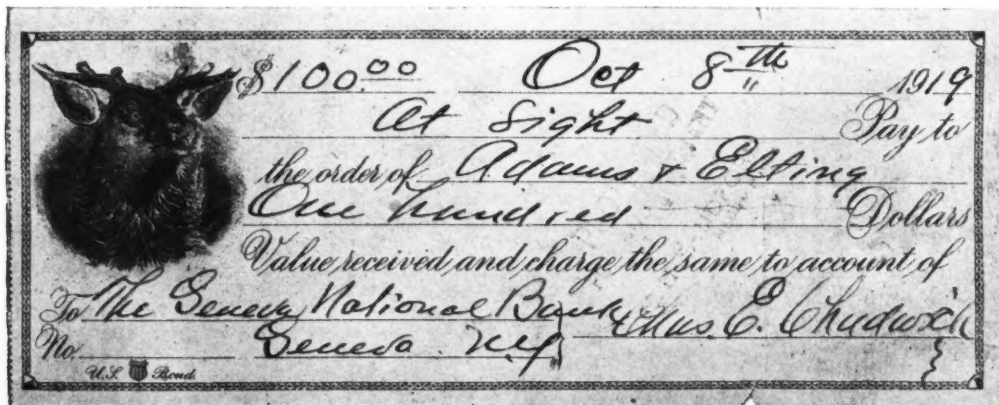 $100.00 Oct 8th 1919
At Sight Pay to
the order of Adams & Elting
One hundred Dollars
Value received and charge the same to account of
To The Geneva National Bank Chas. E. Chadwick
No. Geneva N.Y.
U.S. Bond.